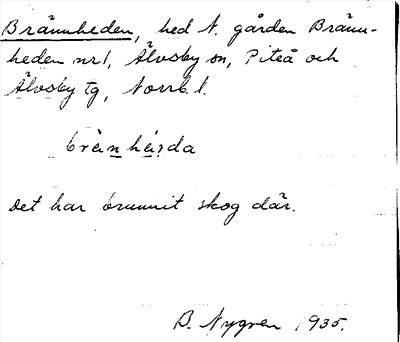 Brännheden, hed N. gården Bränn-
heden nr1, Älvsby sn, Piteå och
Älvsby tg, Norrb. l.
Det har brunnit skog där.
B. Nygren 1935.